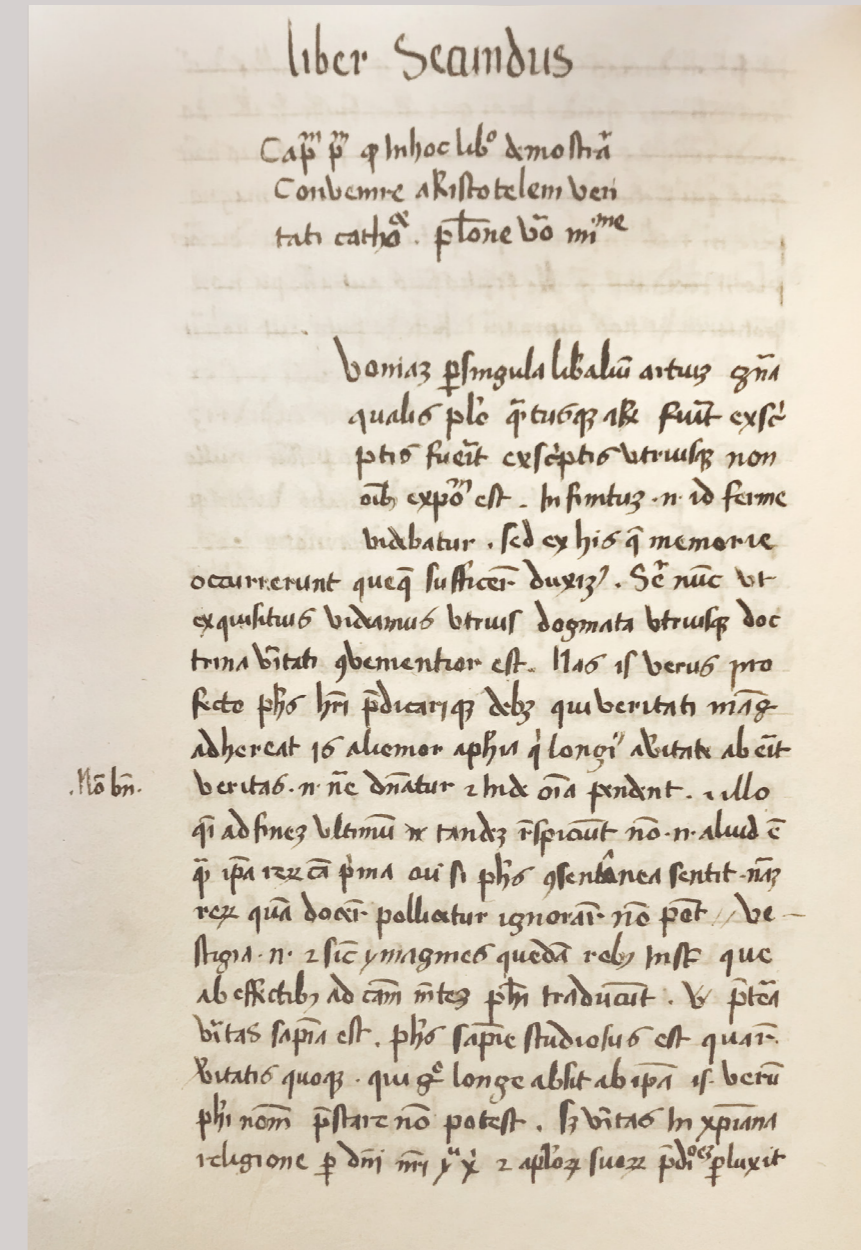 liber Secundus
Capm pm qp In hoc libo demostra
Convenire aRistotelem veri
tati catho. platone vo mime
Voniaz persingula libaliu artiuz gna
qualis plo q tusq fuit
ptis fuerit exscriptis utriusq non
oib expo est. Infinituz .n. id ferme
videbatur . sed ex his q memorie
occurrerunt queq sufficer duxiz . Sed nuc ut
exquisitius videamus utrius dogmata utriusq doc
trina vitati 9venientior est. Nas is verus pro
fecto phs hri pdicariq debz qui veritati mag
adhereat is alienior aphia q longi avitate abeit
.No bn. veritas .n. ne dnatur 2 hide oia pendent . illo
qi ad finez ultimu tandez rspiciut no .n. aliud e
q ipa rerz ca prima cui si phs 9sentanea sentit .naz
rerz qua docer pollicetur ignorar no pot // Ve
stigia .n. 2 sic ymagines queda reb Inst que
ab effectib ad cam mtez phi traducut . ptea
vitas sapia est . phs sapie studiosus est quar
vitatis quoq . qui go longe absit ab ipa is veru
phi nom pstare no potest . sz vitas In xpiana
religione p dni nri 2 aplorz suorz pdi pluxit